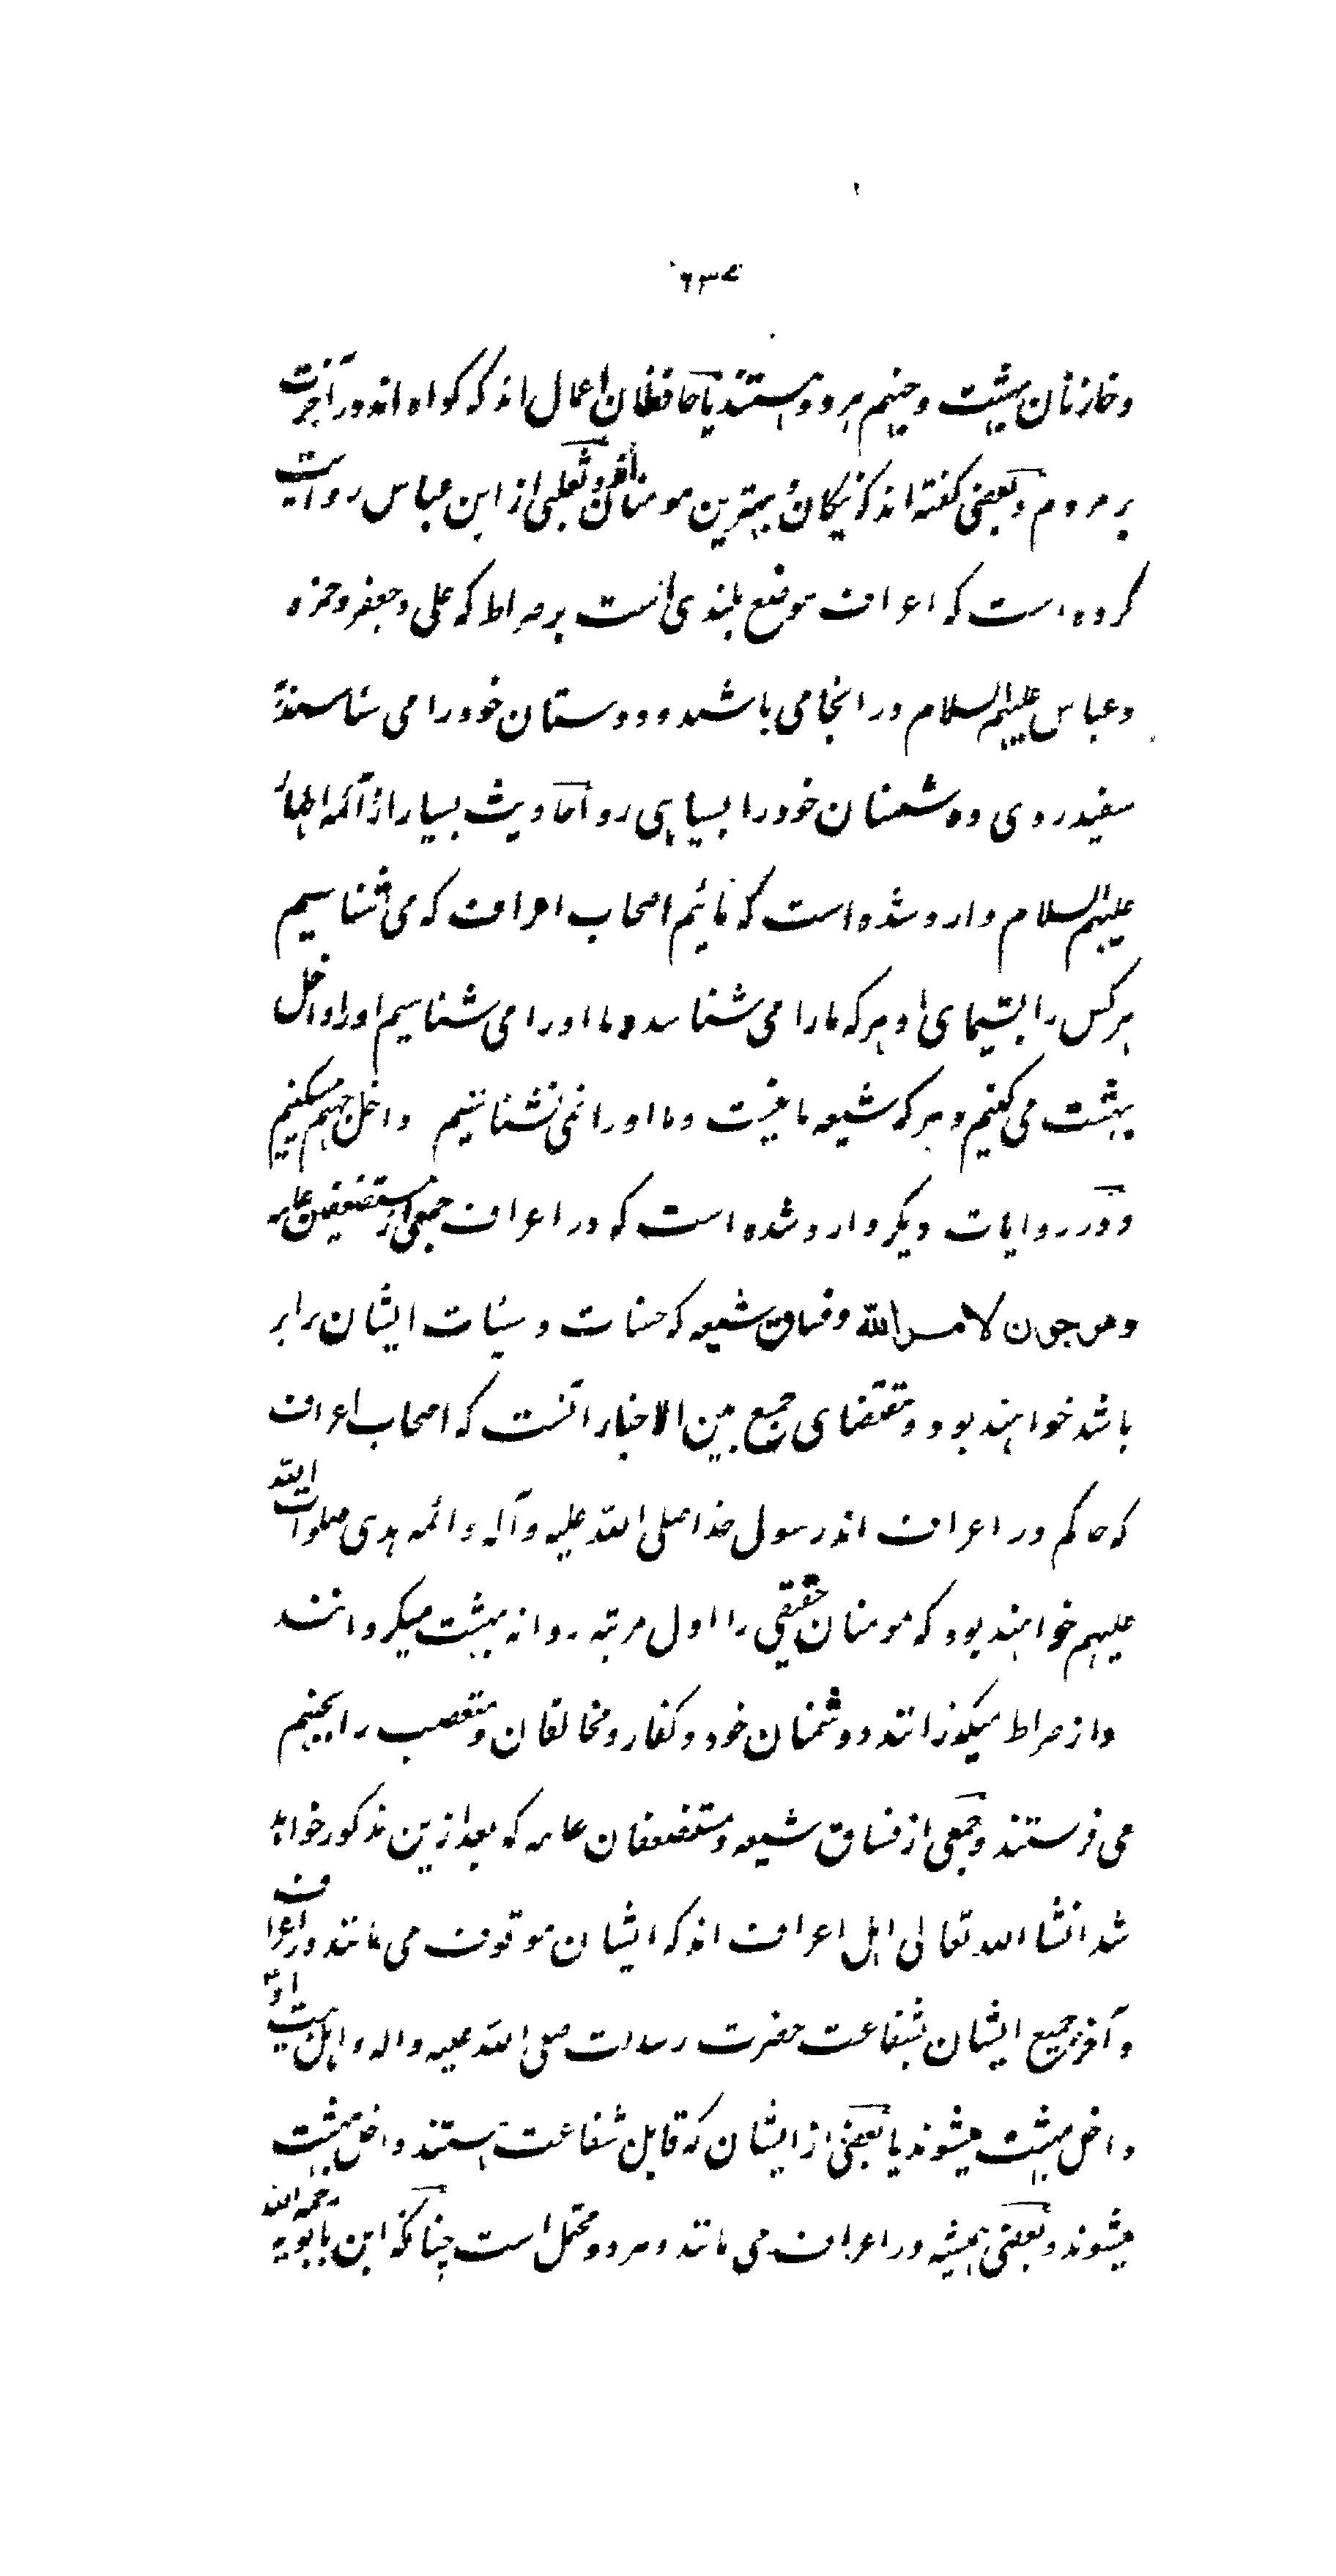 ٦٣٤
و خازنان بهشت و جهنم هر دو هستند یا حافظان اعمال اند که گواه اند در آخرت
بر مردم و بعضی گفته اند که نیکان و بهترین مومنان اند و ثعلبی از ابن عباس روایت
کرده است که اعراف موضع بلندی است بر صراط که علی و جعفر و حمزه
و عباس علیهم السلام در انجا می باشند و دوستان خود را می شناسند به
سفیدروی و دشمنان خود را بسیاهی رو و احادیث بسیار از ائمه اطهار
علیهم السلام وارد شده است که مائیم اصحاب اعراف که می شناسیم
هر کس را بسیمای او هر که ما را می شناسد و ما او را می شناسیم او را داخل
بهشت می کنیم و هر که شیعه ما نیست و ما او را نمی شناسیم داخل جهنم میکنیم
و در روایات دیگر وارد شده است که در اعراف جمعی از مستضعفین عامه
و مرجون لامر الله و فساق شیعه که حسنات و سیئات ایشان برابر
باشد خواهند بود و مقتضای جمع بین الاخبار آنست که اصحاب اعراف
که حاکم در اعراف اند رسول خدا صلی الله علیه و آله و ائمه هدی صلوات الله
علیهم خواهند بود که مومنان حقیقی را اول مرتبه روانه بهشت میگردانند
و از صراط میگذرانند و دشمنان خود و کفار و مخالفان و متعصب را بجهنم
می فرستند و جمعی از فساق شیعه و مستضعفان عامه که بعد ازین مذکور خواهد
شد انشا الله تعالی اهل اعراف اند که ایشان موقوف می مانند در اعراف
و آخر جمیع ایشان بشفاعت حضرت رسالت صلی الله علیه واله و اهل بیت او
داخل بهشت میشوند یا بعضی از ایشان که قابل شفاعت هستند داخل بهشت
میشوند و بعضی همیشه در اعراف می مانند و هر دو محتمل است چنانکه ابن بابویه رحمه الله